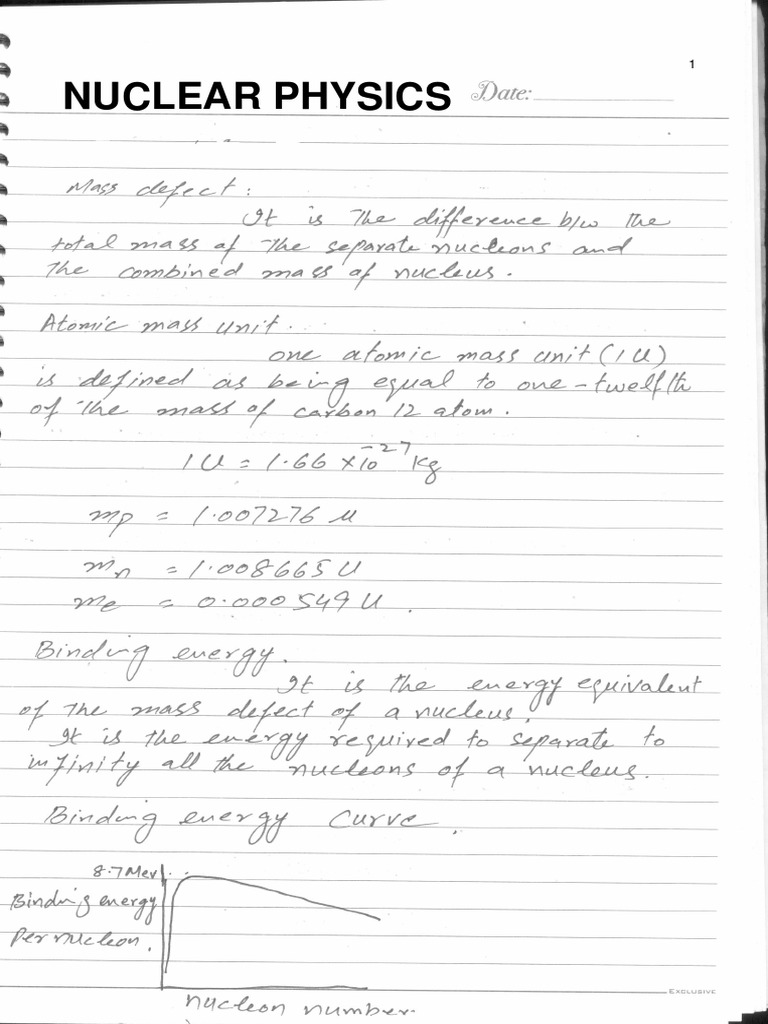 1
NUCLEAR PHYSICS Date:
Mass defect:
It is The difference b/w The
total mass of The separate nucleons and
The combined mass of nucleus.
Atomic mass unit.
one atomic mass unit (1U)
is defined as being equal to one-twelfth
of The mass of carbon 12 atom.
1U = 1.66 × 10⁻²⁷ Kg
mp = 1.007276 u
mn = 1.008665 U
me = 0.000549 U.
Binding energy.
It is the energy equivalent
of The mass defect of a nucleus.
It is the energy required to separate to
infinity all the nucleons of a nucleus.
Binding energy curve.
8.7 Mev
Binding energy
Per nucleon.
nucleon number.
EXCLUSIVE